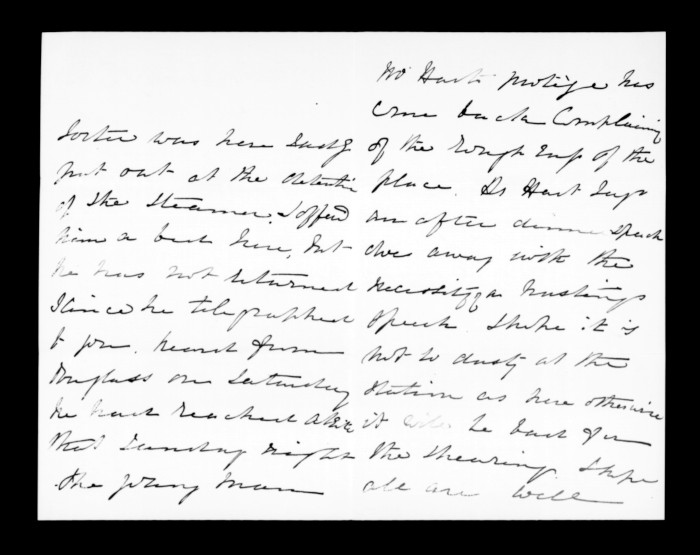 was here sadly
put out at the detention
of the Steamer. I offered
him a bed here, but
he has not returned
since he telegraphed
to you. heard from
Douglass on Saturday
he had reached
that Sunday night
the young man
Mr Harts protege has
come back complaining
of the rough ways of the
place. As Hart says
an after dinner speech
does away with the
necessity of a hustings
speech. I hope it is
not so dusty at the
Station as here otherwise
it will be bad for
the shearing. I hope
all are well